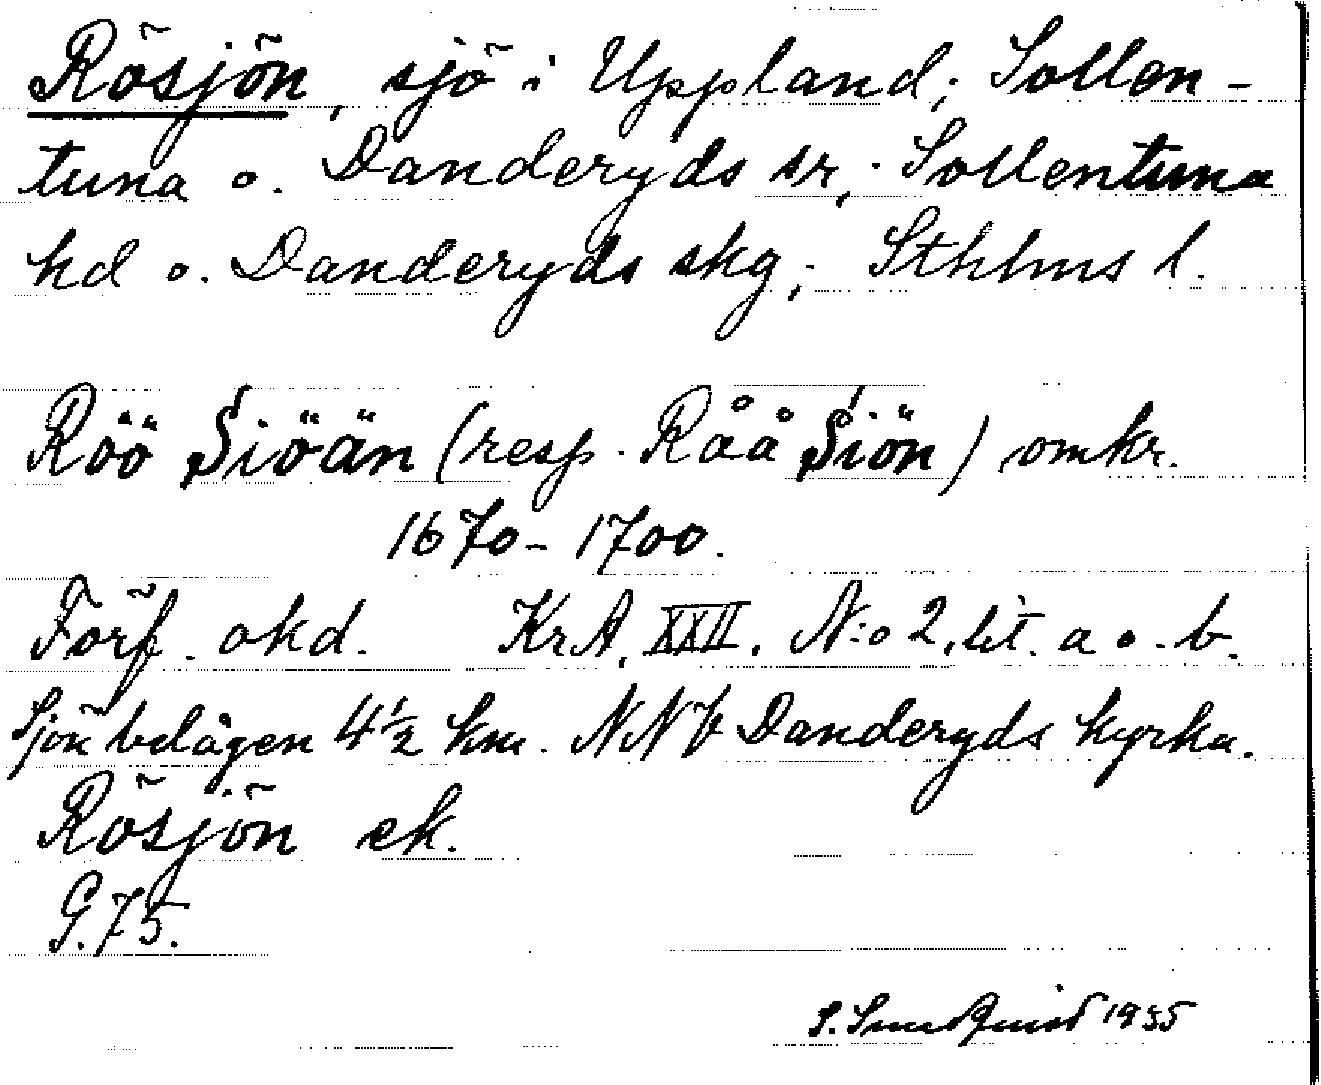 Rösjön, sjö i Uppland; Sollen-
tuna o. Danderyds sr; Sollentuna
hd o. Danderyds skg; Sthlms l.
Röö Siöän (resp. Råå Siön) omkr.
1670-1700.
Förf. okd. KrA. XXII. N:o 2, lit. a o. b.
Sjön belägen 4½ km. NNV Danderyds kyrka.
Rösjön ek.
G.75.
S. 1935